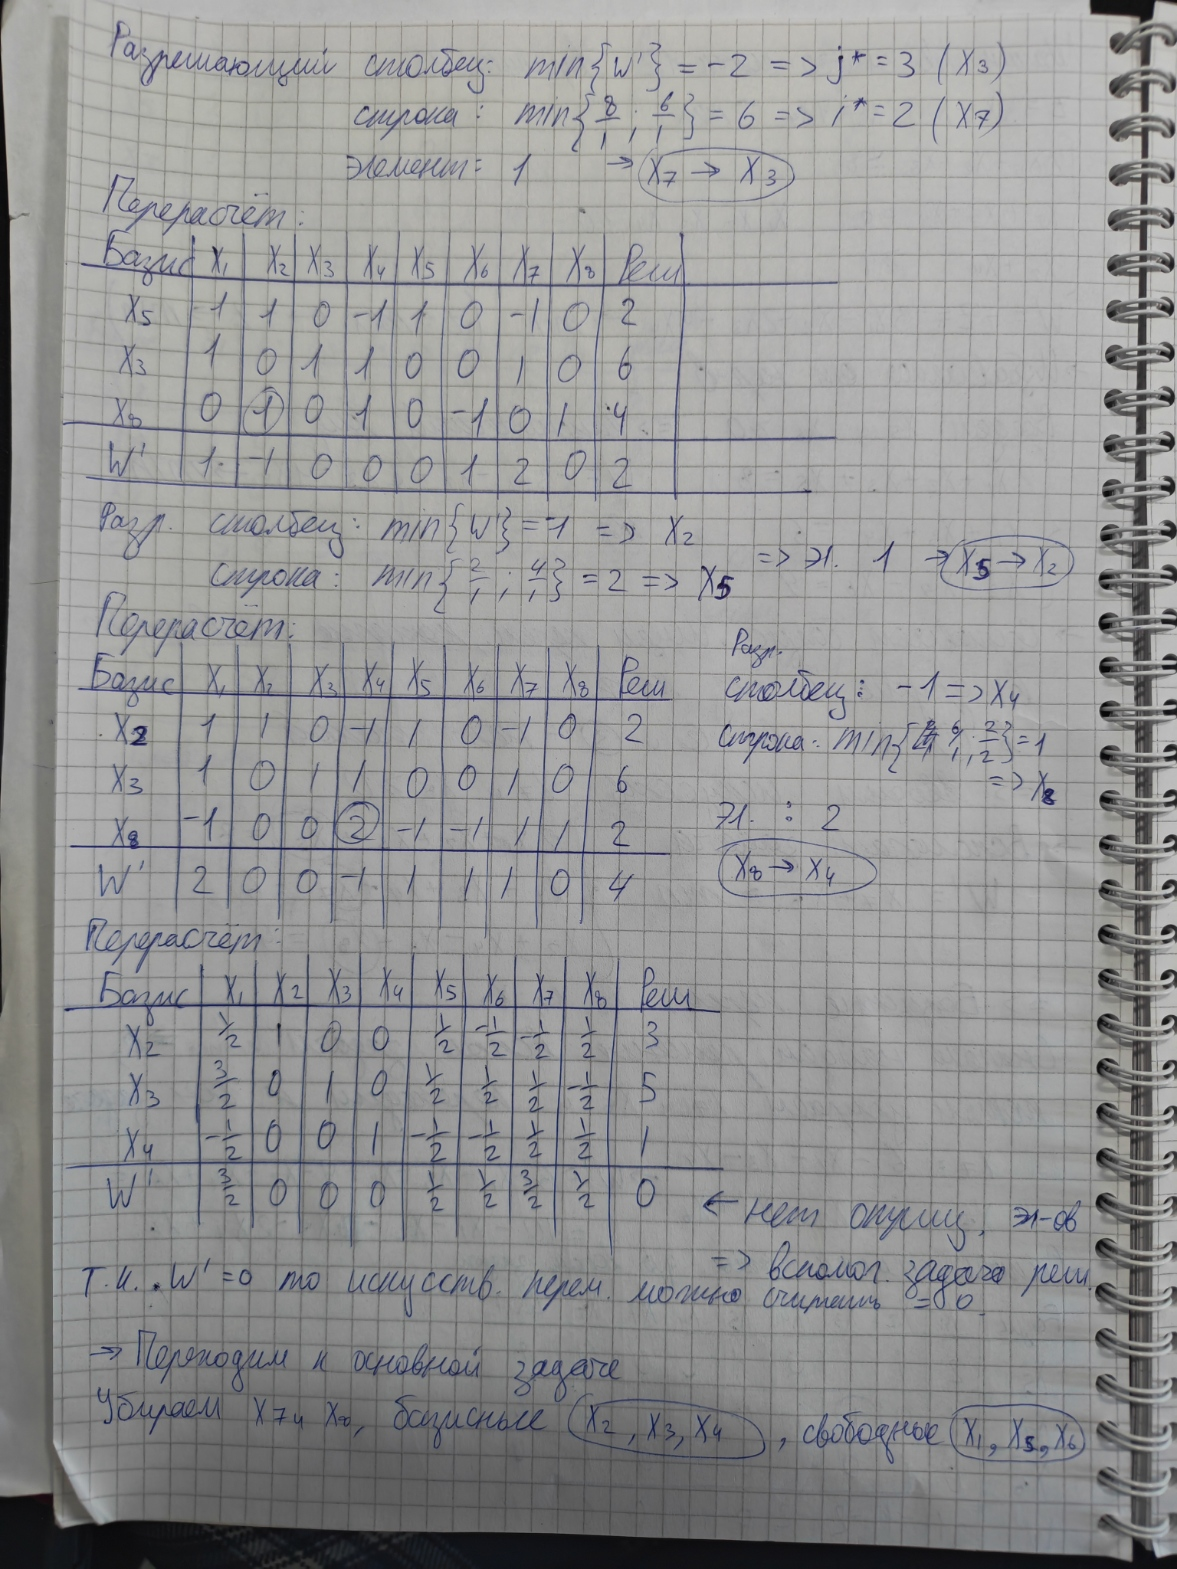 Разрешающий столбец: min{W'} = -2 => j* = 3 (X3)
строка: min{8/1 ; 6/1} = 6 => i* = 2 (X7)
элемент = 1 → X7 → X3
Перерасчёт:
Базис X1 X2 X3 X4 X5 X6 X7 X8 Реш
X5 -1 1 0 -1 1 0 -1 0 2
X3 1 0 1 1 0 0 1 0 6
X8 0 1 0 1 0 -1 0 1 4
W' 1 -1 0 0 0 1 2 0 2
Разр. столбец: min{W'} = -1 => X2
строка: min{2/1 ; 4/1} = 2 => X5 => эл. 1 → X5 → X2
Перерасчёт:
Базис X1 X2 X3 X4 X5 X6 X7 X8 Реш
X2 1 1 0 -1 1 0 -1 0 2
X3 1 0 1 1 0 0 1 0 6
X8 -1 0 0 2 -1 -1 1 1 2
W' 2 0 0 -1 1 1 1 0 4
Разр.
столбец: -1 => X4
строка: min{6/1 ; 2/2} = 1
=> X8
эл. : 2
X8 → X4
Перерасчёт:
Базис X1 X2 X3 X4 X5 X6 X7 X8 Реш
X2 1/2 1 0 0 1/2 -1/2 -1/2 1/2 3
X3 3/2 0 1 0 1/2 1/2 1/2 -1/2 5
X4 -1/2 0 0 1 -1/2 -1/2 1/2 1/2 1
W' 3/2 0 0 0 1/2 1/2 3/2 1/2 0
← нет отриц. эл-ов
=> вспомог. задача реш.
Т.к. W' = 0 то искусств. перем. можно считать = 0
→ Переходим к основной задаче
Убираем X7 и X8, базисные X2, X3, X4, свободные X1, X5, X6